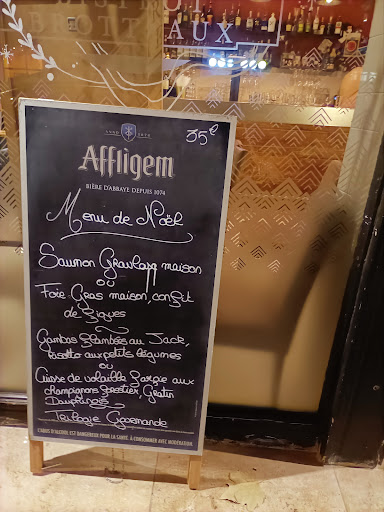 BISTROT
BROTTEAUX
35€
Affligem
BIÈRE D'ABBAYE DEPUIS 1074
Menu de Noël
Saumon Gravlax maison
ou
Foie Gras maison, confit
de Figues
Gambas flambées au Jack,
Risotto aux petits légumes
ou
Cuisse de volaille farcie aux
champignons forestier, Gratin
Dauphinois
Trilogie Gourmande
L'ABUS D'ALCOOL EST DANGEREUX POUR LA SANTÉ. À CONSOMMER AVEC MODÉRATION.